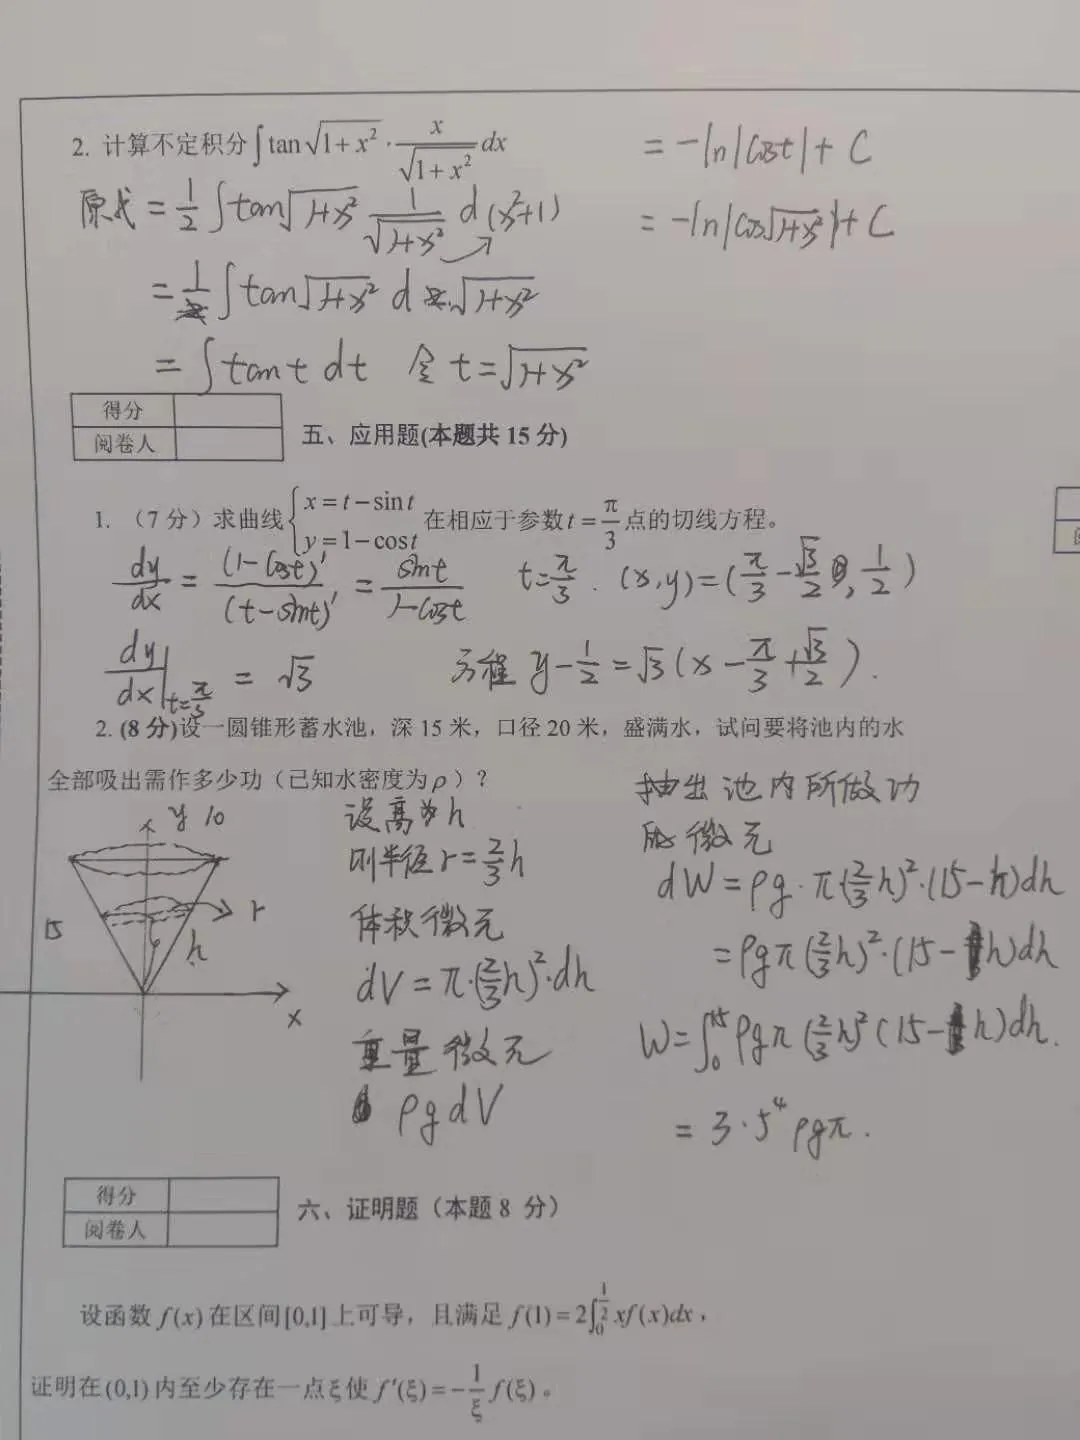 2. 计算不定积分∫tan√(1+x²)·x/√(1+x²) dx
原式=1/2∫tan√(1+x²) 1/√(1+x²) d(x²+1)
=∫tan√(1+x²) d√(1+x²)
=∫tan t dt 令 t=√(1+x²)
=-ln|cost|+C
=-ln|cos√(1+x²)|+C
得分
阅卷人
五、应用题(本题共 15 分)
1. （7 分）求曲线{x=t-sint y=1-cost 在相应于参数t=π/3点的切线方程。
dy/dx=(1-cost)'/(t-sint)'=sint/(1-cost) t=π/3. (x,y)=(π/3-√3/2, 1/2)
dy/dx|t=π/3 = √3 方程 y-1/2=√3(x-π/3+√3/2).
2. (8 分)设一圆锥形蓄水池，深 15 米，口径 20 米，盛满水，试问要将池内的水
全部吸出需作多少功（已知水密度为ρ）？
y 10
15
r
h
x
设高为h
则半径r=2/3h
体积微元
dV=π·(2/3h)²·dh
重量微元
ρgdV
抽出池内所做功
微元
dW=ρg·π(2/3h)²·(15-h)dh
=ρgπ(2/3h)²·(15-h)dh
W=∫₀¹⁵ρgπ(2/3h)²(15-h)dh.
=3·5⁴ρgπ.
得分
阅卷人
六、证明题（本题 8 分）
设函数 f(x)在区间[0,1]上可导，且满足 f(1)=2∫₀^(1/2) xf(x)dx，
证明在(0,1)内至少存在一点ξ使 f'(ξ)=-1/ξ f(ξ)。